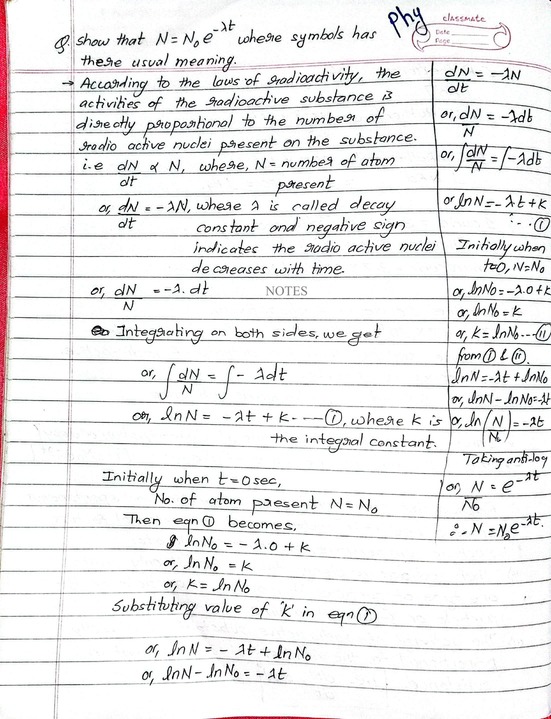 Phy
classmate
Date
Page
Q. Show that N = N₀ e^-λt where symbols has
there usual meaning.
→ According to the laws of radioactivity, the
activities of the radioactive substance is
directly proportional to the number of
radio active nuclei present on the substance.
i.e dN/dt ∝ N, where, N = number of atom
present
or, dN/dt = -λN, where λ is called decay
constant and negative sign
indicates the radio active nuclei
decreases with time.
or, dN/N = -λ. dt
NOTES
Integrating on both sides, we get
or, ∫ dN/N = ∫ - λdt
or, lnN = -λt + K. --- ①, where K is
the integral constant.
Initially when t = 0 sec,
No. of atom present N = N₀
Then eqn ① becomes,
lnN₀ = -λ.0 + K
or, lnN₀ = K
or, K = lnN₀
Substituting value of 'K' in eqn ①
or, lnN = -λt + lnN₀
or, lnN - lnN₀ = -λt
dN/dt = -λN
or, dN/N = -λdt
or, ∫ dN/N = ∫ -λdt
or lnN = -λt + K
--- ①
Initially when
t=0, N=N₀
or, lnN₀ = -λ.0 + K
or, lnN₀ = K
or, K = lnN₀ --- ⑪
from ① & ⑪
lnN = -λt + lnN₀
or, lnN - lnN₀ = -λt
or, ln(N/N₀) = -λt
Taking anti-log
or, N/N₀ = e^-λt
∴ N = N₀e^-λt.